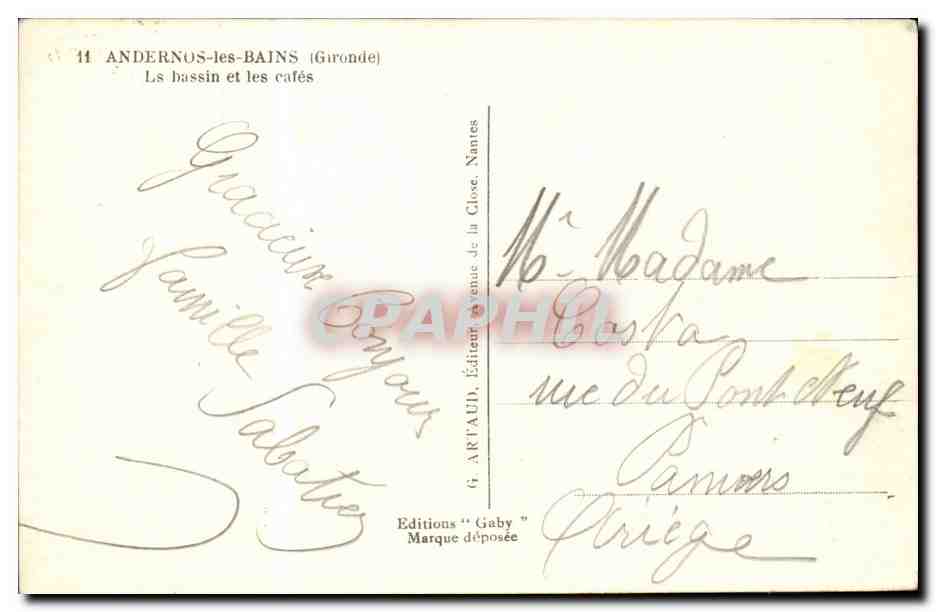 11 ANDERNOS-les-BAINS (Gironde)
Ls bassin et les cafés
Gracieux Bonjour
Famille Sabatier
G. ARTAUD, Éditeur, Avenue de la Close, Nantes
CPAPHIL
Mr Madame
Costa
rue du Pont Neuf
Pamiers
Ariège
Editions " Gaby "
Marque déposée